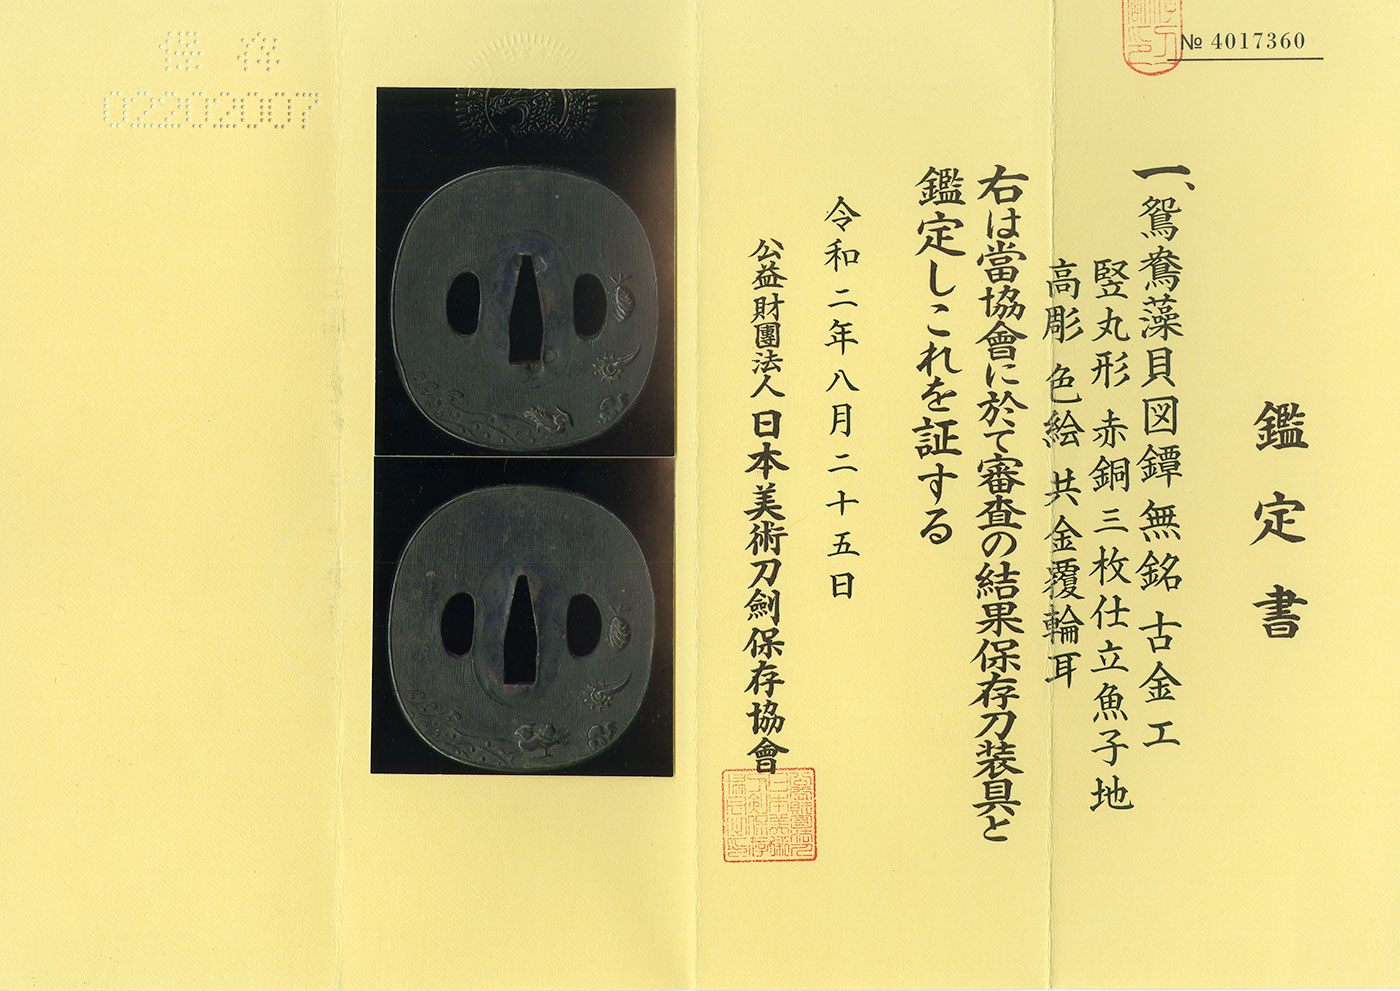 № 4017360
鑑定書
一、鴛鴦藻貝図鐔 無銘 古金工
竪丸形 赤銅三枚仕立魚子地
高彫 色絵 共金覆輪耳
右は當協會に於て審査の結果保存刀装具と
鑑定しこれを証する
令和二年八月二十五日
公益財團法人 日本美術刀劍保存協會
保存
02202007